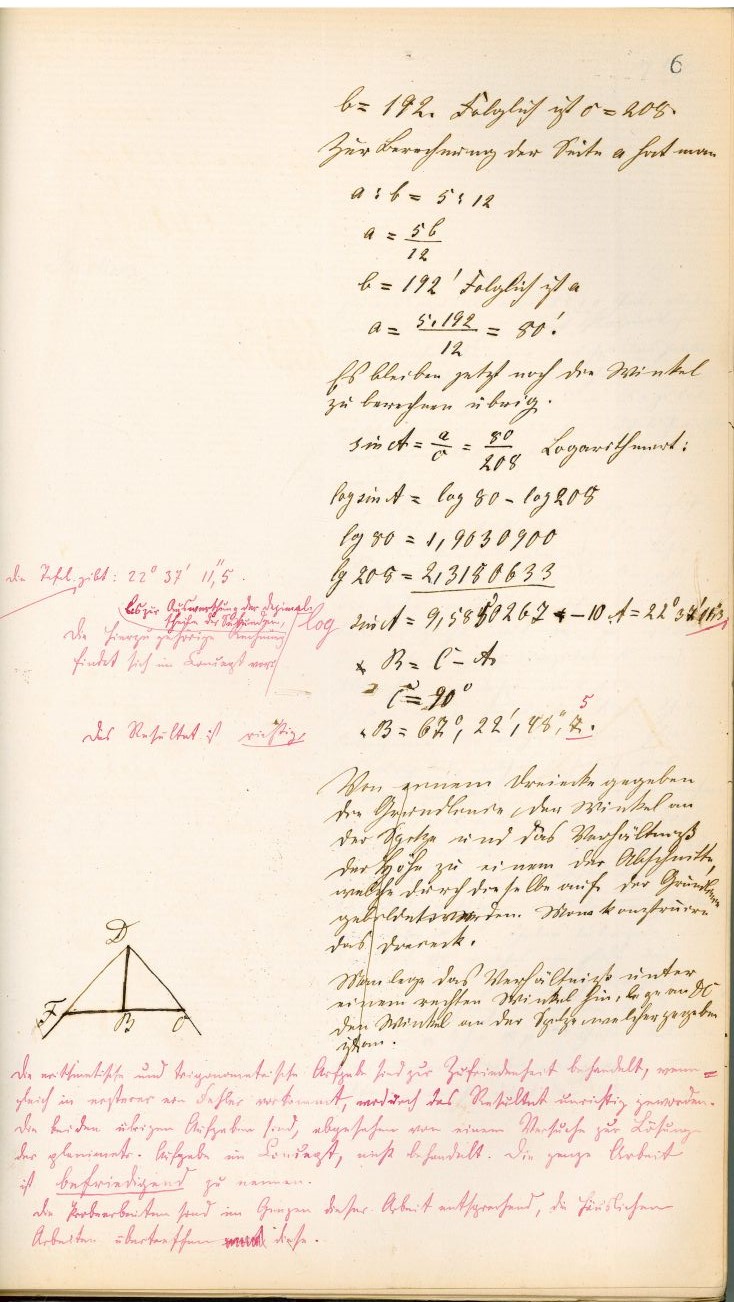 6
b = 192. Folglich ist c = 208.
Zur Berechnung der Seite a hat man
a : b = 5 : 12
a = 5b/12
b = 192' Folglich ist a
a = 5.192/12 = 80'.
Es bleiben jetzt noch die Winkel
zu berechnen übrig.
sin A = a/c = 80/208 Logarithmirt:
log sin A = log 80 - log 208
lg 80 = 1,9030900
lg 208 = 2,3180633
die Tafel gibt: 22° 37' 11",5.
log sin A = 9,5850267 - 10 A = 22° 37' 11"3
bis zur Auswerthung der Dezimal-
stellen der Sekunden,
Die hierzu gehörige Rechnung
findet sich im Concept vor.
B = C - A
C = 90°
B = 67°, 22', 48", 7. 5
Das Resultat ist richtig.
Von einem Dreiecke gegeben
die Grundlinie, der Winkel an
der Spitze und das Verhältniß
der Höhe zu einem der Abschnitte,
welche durch dieselbe auf der
gebildet werden. Man konstruire
das Dreieck.
Man lege das Verhältniß unter
einem rechten Winkel hin, lege an DC
den Winkel an der Spitze welcher gegeben
ist an.
D
F B C
Die arithmetische und trigonometrische Aufgabe sind zur Zufriedenheit behandelt, wenn-
gleich in ersterer ein Fehler vorkommt, wodurch das Resultat unrichtig geworden.
Die beiden übrigen Aufgaben sind, abgesehen von einem Versuche zur Lösung
der planimetr. Aufgabe im Concept, nicht behandelt. Die ganze Arbeit
ist befriedigend zu nennen.
Die Probearbeiten sind im Ganzen dieser Arbeit entsprechend, die häuslichen
Arbeiten übertreffen diese.